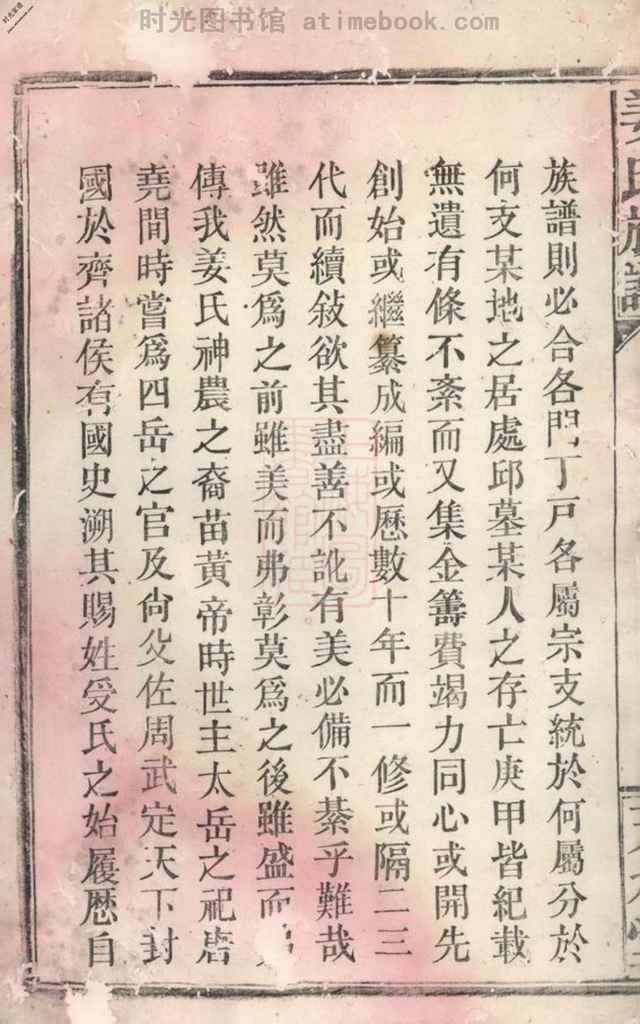 时光图书馆 atimebook.com
时光家谱
姜氏族譜
族譜則必合各門丁戸各屬宗支統於何屬分於
何支某地之居處邱墓某人之存亡庚甲皆紀載
無遺有條不紊而又集金籌費竭力同心或開先
創始或繼纂成編或歷數十年而一修或隔二三
代而續敍欲其盡善不訛有美必備不綦乎難哉
雖然莫爲之前雖美而弗彰莫爲之後雖盛而
傳我姜氏神農之裔苗黃帝時世主太岳之祀唐
堯間時嘗爲四岳之官及尙父佐周武定天下封
國於齊諸侯有國史溯其賜姓受氏之始履歷自